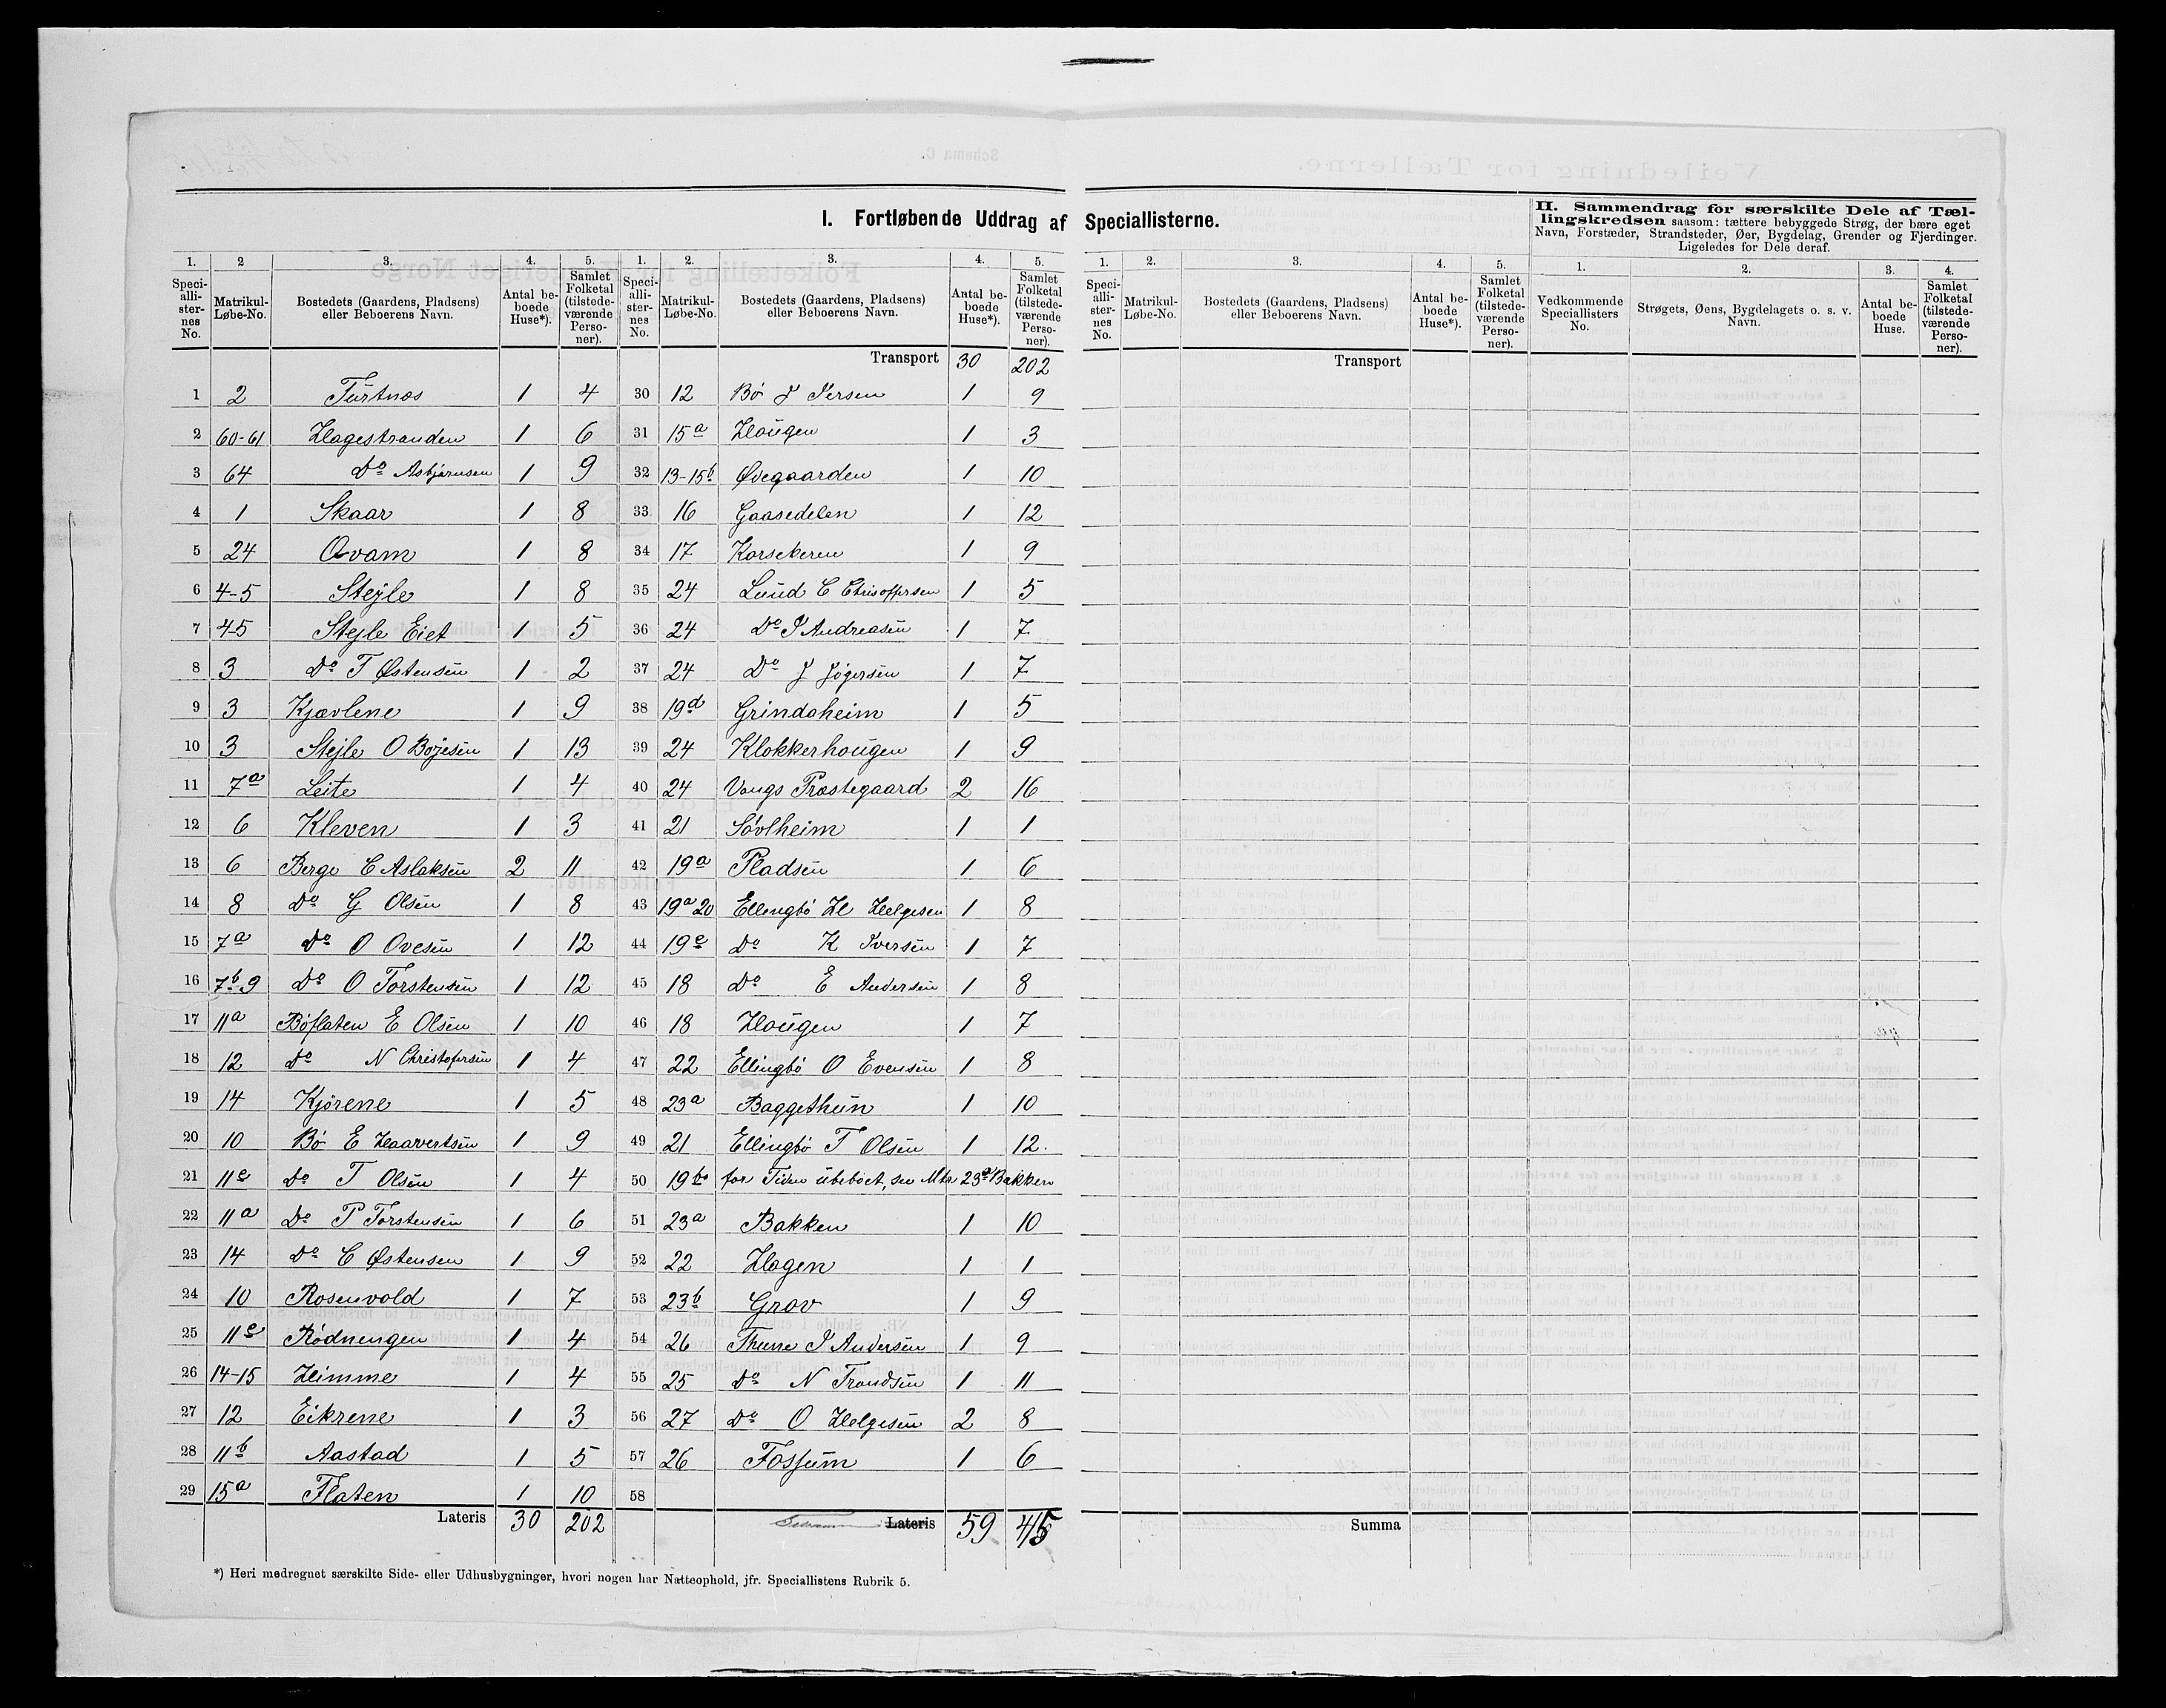 I. Fortløbende Uddrag af Speciallisterne.
II. Sammendrag for særskilte Dele af Tæl-
lingskredsen saasom: tættere bebyggede Strøg, der bære eget
Navn, Forstæder, Strandsteder, Øer, Bygdelag, Grender og Fjerdinger.
Ligeledes for Dele deraf.
1. 2 3. 4. 5.
Speci-alli-ster-nes No. Matrikul-Løbe-No. Bostedets (Gaardens, Pladsens) eller Beboerens Navn. Antal be-boede Huse*). Samlet Folketal (tilstede-værende Perso-ner).
1 2 Turtnes 1 4
2 60-61 Hagestranden 1 6
3 64 Do Asbjørnsen 1 9
4 1 Skaar 1 8
5 24 Qvam 1 8
6 4-5 Stejle 1 8
7 4-5 Stejle Eiet 1 5
8 3 Do T Østensen 1 2
9 3 Kjævlene 1 9
10 3 Stejle O Bojesen 1 13
11 7a Leite 1 4
12 6 Kleven 1 3
13 6 Berge E Aslaksen 2 11
14 8 Do G Olsen 1 8
15 7a Do O Ovesen 1 12
16 7b-9 Do O Torstensen 1 12
17 11a Bøflaten E Olsen 1 10
18 12 Do N Christofersen 1 4
19 14 Kjørene 1 5
20 10 Bø E Haavertsen 1 9
21 11c Do T Olsen 1 4
22 11a Do P Torstensen 1 6
23 14 Do C Østensen 1 9
24 10 Rosenvold 1 7
25 11c Rødnengen 1 4
26 14-15 Himme 1 4
27 12 Eikrene 1 3
28 11b Aastad 1 5
29 15a Flaten 1 10
Lateris 30 202
1. 2. 3. 4. 5.
Speci-alli-ster-nes No. Matrikul-Løbe-No. Bostedets (Gaardens, Pladsens) eller Beboerens Navn. Antal be-boede Huse*). Samlet Folketal (tilstede-værende Perso-ner).
Transport 30 202
30 12 Bø J Iversen 1 9
31 15a Haugen 1 3
32 13-15b Ødegaarden 1 10
33 16 Gaasedelen 1 12
34 17 Korsekeren 1 9
35 24 Lund C Chrisoffersen 1 5
36 24 Do I Andreasen 1 7
37 24 Do J Jøgersen 1 7
38 19d Grindaheim 1 5
39 24 Klokkerhougen 1 9
40 24 Vangs Præstegaard 2 16
41 21 Sóvlheim 1 1
42 19a Pladsen 1 6
43 19a 20 Ellingbø H Helgesen 1 8
44 19c Do K Iversen 1 7
45 18 Do E Andersen 1 8
46 18 Haugen 1 7
47 22 Ellingbø O Evensen 1 8
48 23a Baggethun 1 10
49 21 Ellingbø T Olsen 1 12
50 19b for Tiden ubeboet, se Mtr 23a Bakken
51 23a Bakken 1 10
52 22 Hagen 1 1
53 23b Grov 1 9
54 26 Thune I Andersen 1 9
55 25 Do N Trondsen 1 11
56 27 Do O Helgesen 2 8
57 26 Fossum 1 6
58
Lateris 59 415
1. 2. 3. 4. 5.
Speci-alli-ster-nes No. Matrikul-Løbe-No. Bostedets (Gaardens, Pladsens) eller Beboerens Navn. Antal be-boede Huse*). Samlet Folketal (tilstede-værende Perso-ner).
Transport
Summa
1. 2. 3. 4.
Vedkommende Speciallisters No. Strøgets, Øens, Bygdelagets o. s. v. Navn. Antal be-boede Huse. Samlet Folketal (tilstede-værende Perso-ner).
*) Heri medregnet særskilte Side- eller Udhusbygninger, hvori nogen har Natteophold, jfr. Speciallistens Rubrik 5.